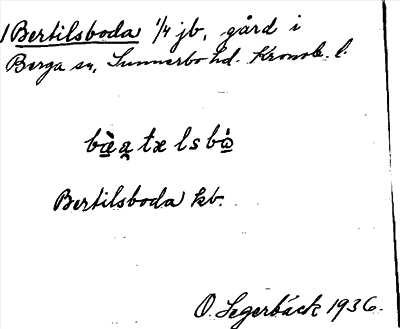 1 Bertilsboda 1/4 jb, gård i
Berga sn, Sunnerbo hd. Kronob. l.
Bertilsboda kb.
O. Segerbäck 1936.